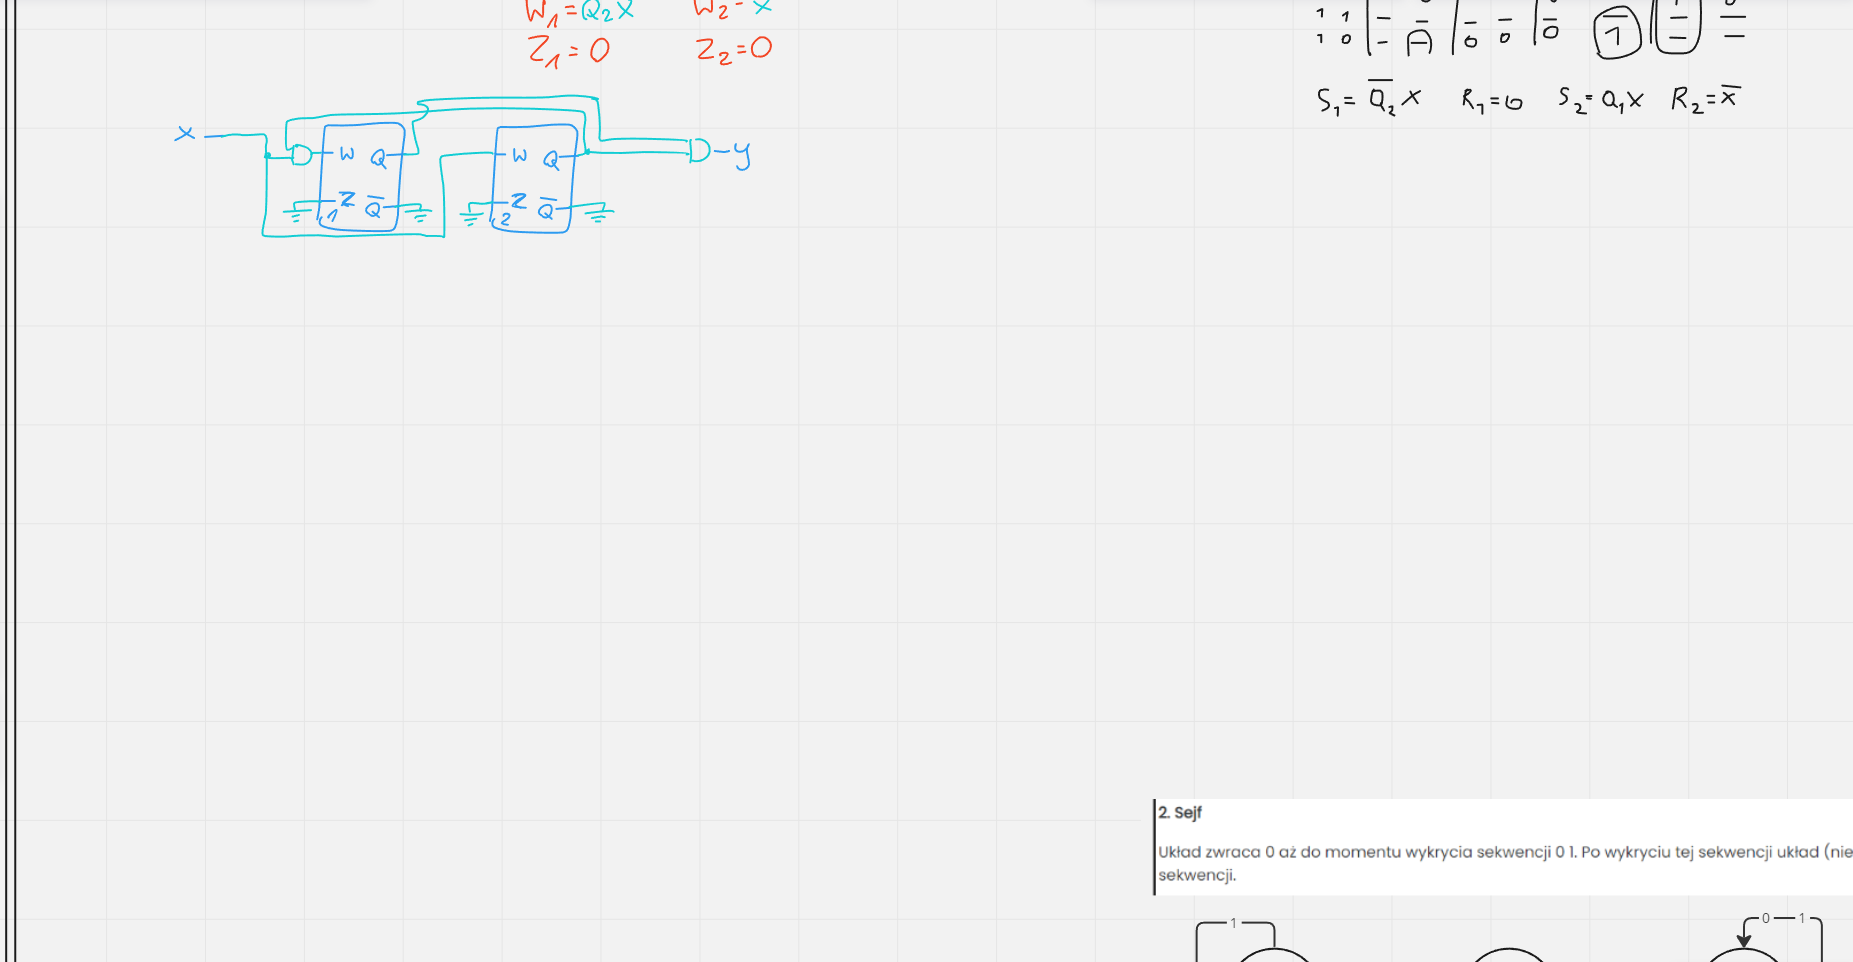 W₁=Q₂X W₂=X
Z₁=0 Z₂=0
1 1 - - - -
1 0 - 0 0 0 1
S₁= Q̅₂ X R₁=0 S₂= Q₁X R₂= x̅
x
W Q
Z Q̅
1
W Q
Z Q̅
2
y
2. Sejf
Układ zwraca 0 aż do momentu wykrycia sekwencji 0 1. Po wykryciu tej sekwencji układ (nie
sekwencji.
1
0 1